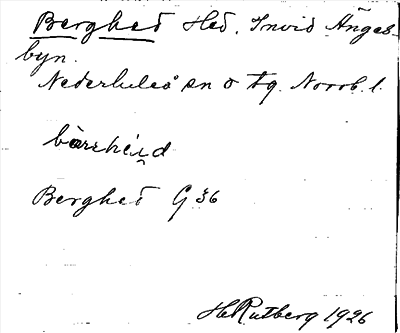 Berghed Hed. Invid Ängesbyn.
Nederluleå sn o tg. Norrb. l.
Berghed G 36
H Rutberg 1926